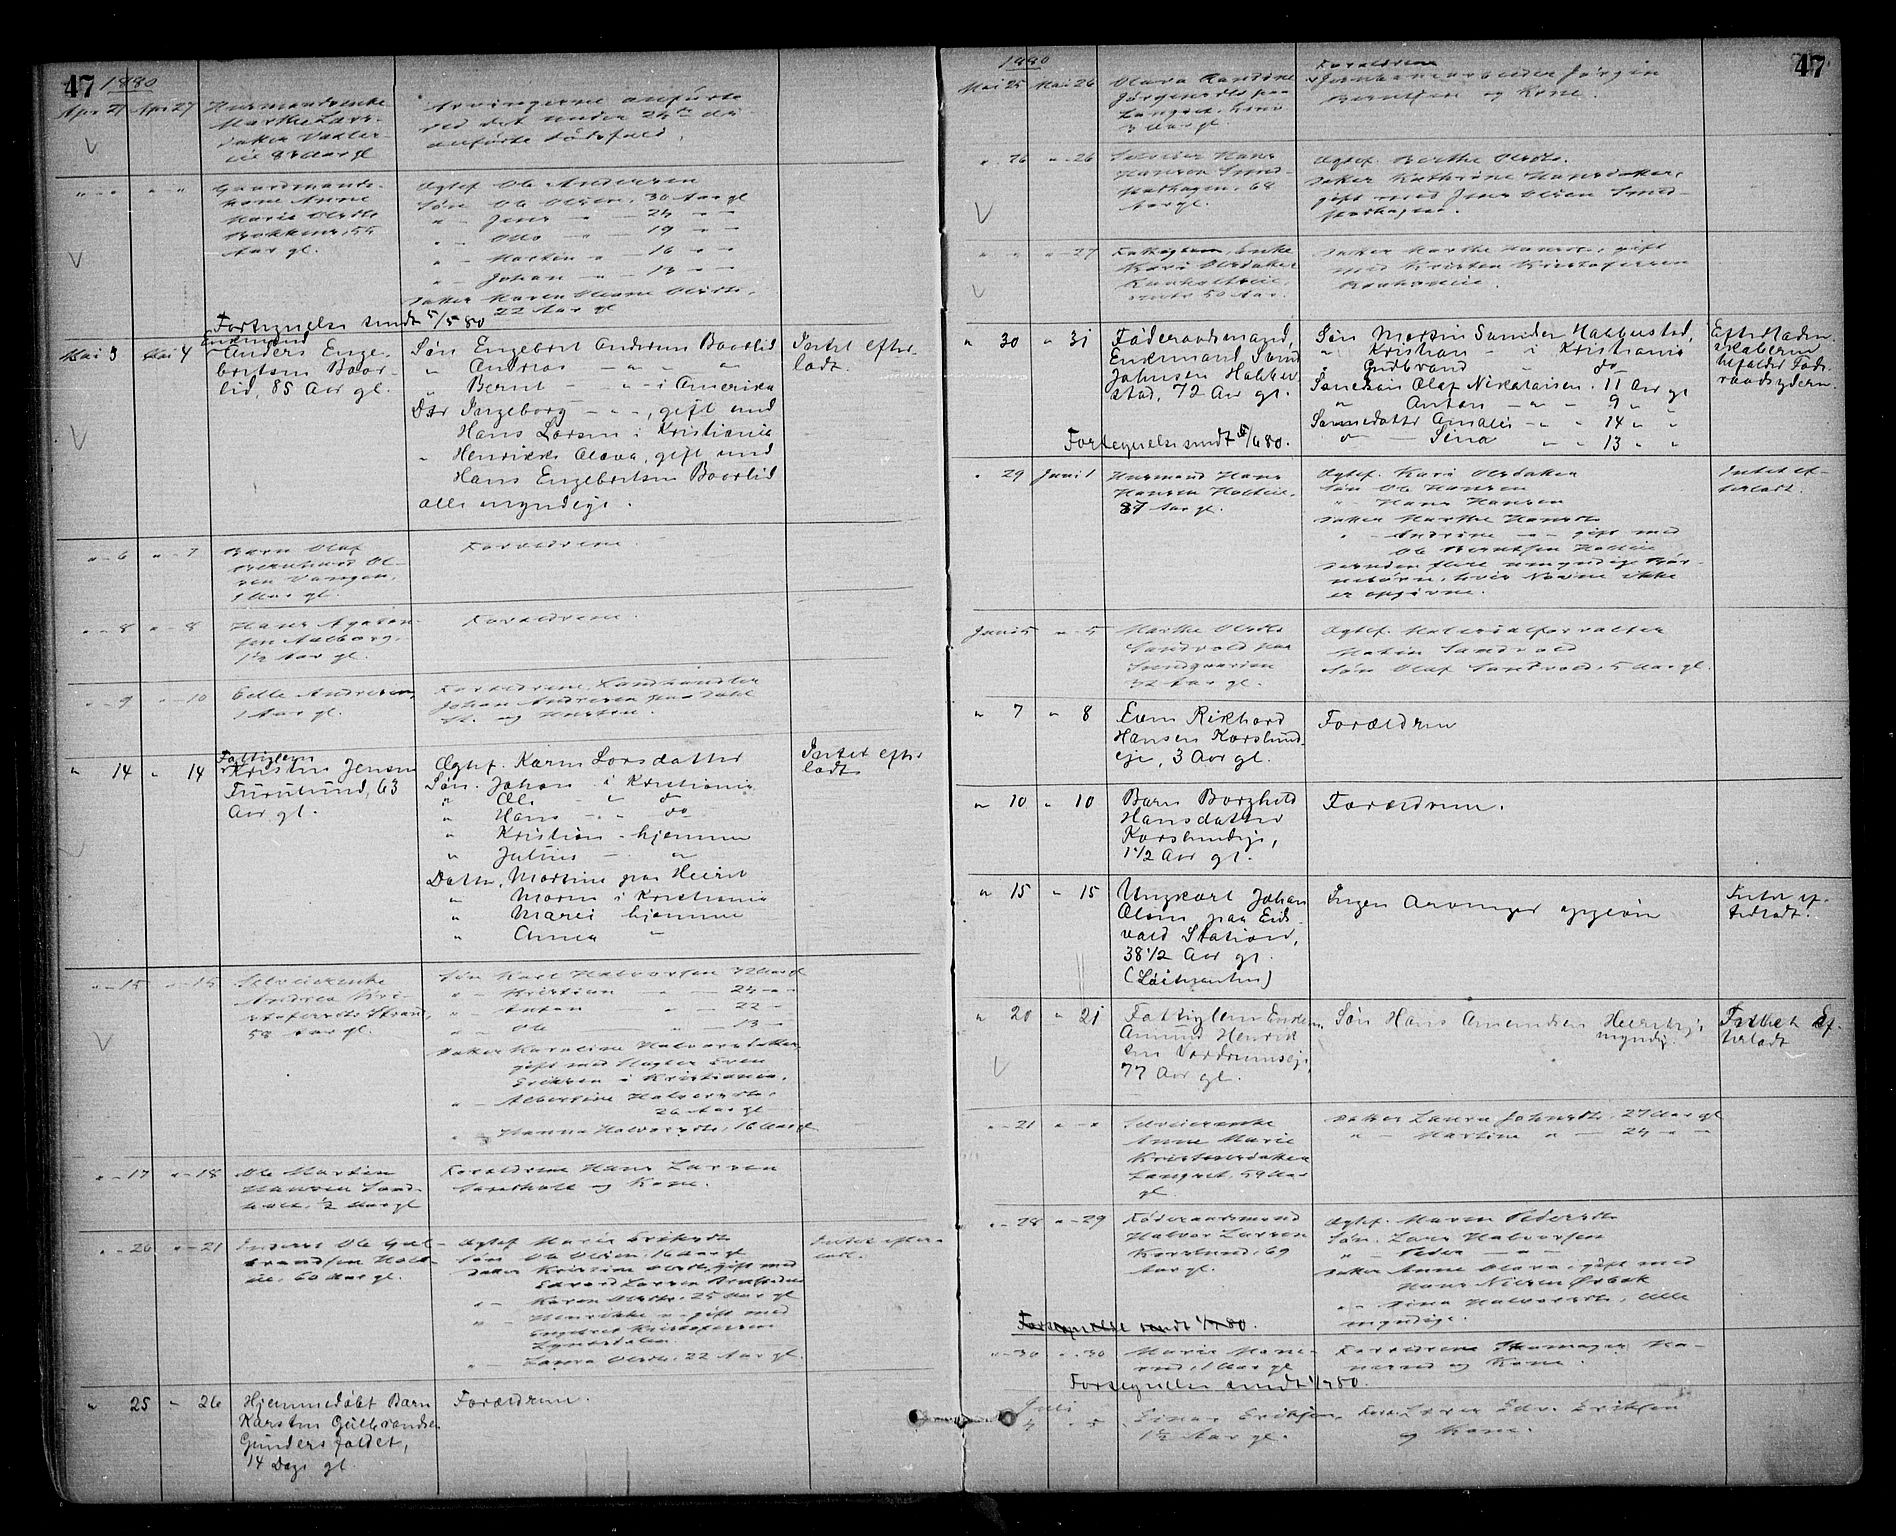 47 1880
Apr 27 Apr 27 Husmandsenke
Marthe Lars-
datter
eie 83 Aar gl.
Arvingerne anførte
ved det under 24de ds
anførte dødsfald.
" - " " " Gaardmands-
kone Anne
Marie Olsdtr
55
Aar gl.
Ægtef. Ole Andersen
Søn Ole Olsen, 30 Aar gl
" - Jens - " - 24 " -
" - Otto - " - 19 " -
" - Martin " - 16 " -
" - Johan " - 13 " -
Datter Maren Oleane Olsdtr,
22 Aar gl
Fortegnelse sendt 5/5 80
Mai 3 Mai 4 Enkemand
Anders Enge-
bretsen Baar-
lid, 85 Aar gl.
Søn Engebret Andersen Baarlid
" Andreas - " - "
" Bernt - " - i Amerika
Dtr Ingeborg - " -, gift med
Hans Larsen i Kristiania
" Henrikke Olava, gift med
Hans Engebretsen Baarlid
alle myndige.
Intet efter-
ladt.
" - 6 " - 7 Barn Olaf
Bernhard Ol-
sen Vangen,
1 Aar gl.
Forældrene.
" - 8 " - 8 Hans Agaton-
sen Aalborg,
1½ Aar gl.
Forældrene.
" - 9 " - 10 Andersen,
1 Aar gl.
Forældrene, Landhandler
Johan Andersen paa Dahl
St. og Hustru.
" 14 " 14 Fattiglem
Kristen Jensen
Furulund, 63
Aar gl.
Ægtef. Karen Larsdatter
Søn. Johan i Kristiania
" Ole - " do
" Hans - " do
" Kristian - hjemme
" Julius - "
Datter, Martine paa Heiret
" Maren i Kristiania
" Marei hjemme
" Anna "
Intet efter-
ladt
" - 15 " - 15 Selveierenke
Andrea Kri-
stofersdtr Strand,
58 Aar gl.
Søn Karl Halvorsen 32 Aar gl
" - Kristian - " - 24 " -
" - Anton - " - 22 -
" - Ole " - 13 -
Datter Karoline Halvorsdatter,
gift med Slagter Even
Eriksen i Kristiania.
" - Albertine Halvorsdtr,
26 Aar gl
" Hanna Halvorsdtr, 16 Aar gl
" - 17 " - 18 Ole Martin
Hansen Sand-
holt, ½ Aar gl
Forældrene Hans Larsen
Sandholt og Kone.
" - 20 " - 21 Inderst Ole Gul-
brandsen Holt-
eie, 60 Aar gl.
Ægtef. Marie Eriksdtr
Søn Ole Olsen, 16 Aar gl
Datter Kristine Olsdtr, gift med
Edvard Larsen
" - Karen Olsdtr, 25 Aar gl
" - Henrikke " - gift med
Engebret Kristofersen
" - Laura Olsdtr, 22 Aar gl.
Intet efter-
ladt.
" 25 " 26 Hjemmedøbt Barn
Karsten Gulbrandsen
Gundersfaldet,
14 Dage gl.
Forældrene.
1880 47
Mai 25 Mai 26 Olava Randine
Jørgensdtr paa
Langset,
3 Aar gl.
Forældrene
Jernbanearbeider Jørgen
Berntsen og Kone.
" - 26 " - 26 Selveier Hans
Hansen Smed-
stadhagen, 68
Aar gl.
Ægtef. Berthe Olsdtr.
Datter Kathrine Hansdatter,
gift med Jens Olsen Smed-
stadhagen.
" " " - 27 Fattiglem Enke
Kari Olsdatter
Rønholteie,
omtr. 50 Aar.
Datter Marthe Hansdtr, gift
med Kristen Kristofersen
Rønholteie.
" 30 " 31 Føderaadsmand,
Enkemand Sander
Johnsen Habber-
stad, 72 Aar gl.
Søn Martin Sander Habberstad,
" Kristian - i Kristiania
" Gudbrand " do
Sønnesøn Olaf Nikolaisen. 11 Aar gl
" Anton - " - 9 " "
Sønnedatter Amalie - " - 14 " "
" - Lina " " 13 " "
Efterladen-
skaberne
tilfalder Føde-
raadsyderen.
Fortegnelse sendt 5/6 80.
" 29 Juni 1 Husmand Hans
Hansen Holteie,
87 Aar gl.
Ægtef. Kari Olsdatter
Søn Ole Hansen
" Hans Hansen
Datter Marthe Hansdtr
" - Andrine - " - gift med
Ole Berntsen Holteie
desuden flere umyndige Bør-
nebørn, hvis Navne ikke
er opgivne.
Intet ef-
terladt.
Juni 5 " - 5 Marthe Olsdtr
Sandvold paa
32 Aar gl.
Ægtef. Materialforvalter
Martin Sandvold
Søn Olaf Sandvold, 5 Aar gl.
" 7 " 8 Even Rikhard
Hansen Korslund-
eje, 3 Aar gl.
Forældren
" 10 " 10 Barn Borghild
Hansdatter
Korslundeje,
1 1/2 Aar gl.
Forældrene.
" 15 " 15 Ungkarl Johan
Olsen paa Eids-
vold Station,
38 1/2 Aar gl.
Ingen Arvinger opgivne
Intet ef-
terladt.
" 20 " 21 Fattiglem Enkem.
Amund Henrik-
sen Vordrumseje,
77 Aar gl.
Søn Hans Amundsen
myndig.
Intet Ef-
terladt
" - 21 " - " Selveierenke
Anne Marie
Kristensdatter
Langset, 59 Aar
gl.
Datter Laura Johnsdtr, 27 Aar gl
" - Martine " - 24 " -
" - 28 " - 29 Føderaadsmand
Halvor Larsen
Korslund, 69
Aar gl.
Ægtef. Maren Pedersdtr
Søn. Lars Halvorsen
" - Peder - " -
Datter Anne Olava, gift med
Hans Nilsen Ørbæk
" - Lina Halvorsdtr, Alle
myndige.
Fortegnelse sendt 1/7 80.
" - 30 " - 30 Marie
1 Aar gl
Forældrene
og Kone.
Fortegnelse sendt 1/7 80.
Juli
4 " - 5 Einar Eriksen,
1½ Aar gl.
Eriksen
og Kone.